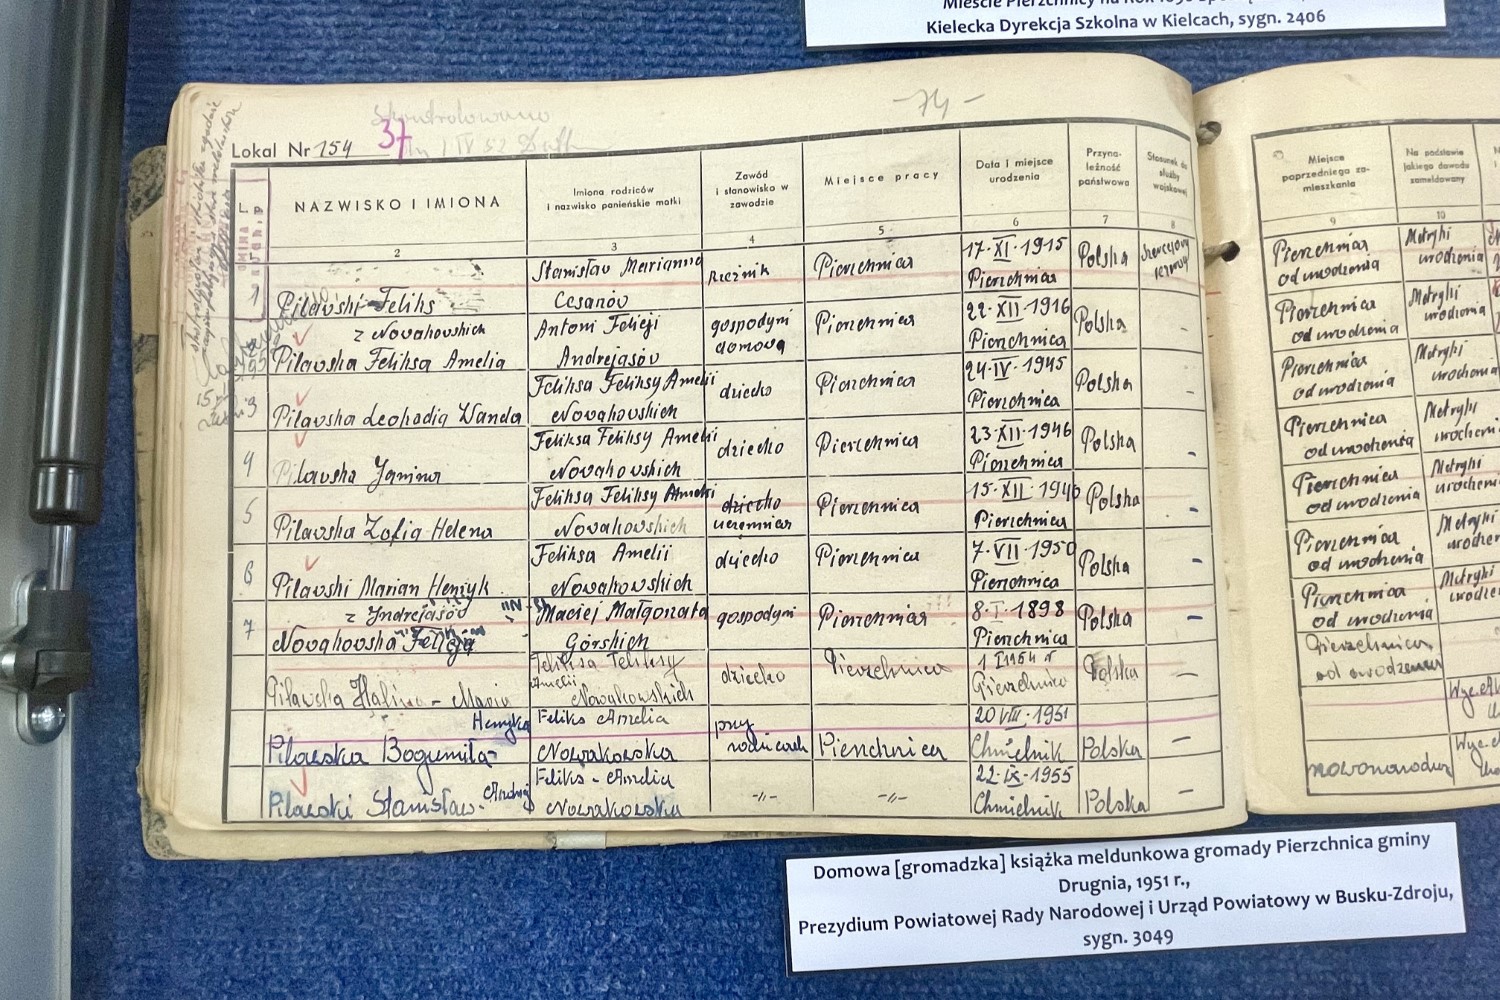 Kielecka Dyrekcja Szkolna w Kielcach, sygn. 2406
- 74 -
Skontrolowano
Lokal Nr 154 37
NAZWISKO I IMIONA
Imiona rodziców i nazwisko panieńskie matki
Zawód i stanowisko w zawodzie
Miejsce pracy
Data i miejsce urodzenia
Przynależność państwowa
Stosunek do służby wojskowej
Miejsce poprzedniego zamieszkania
Na podstawie jakiego dowodu zameldowany
2 3 4 5 6 7 8 9 10
1 Pilawski Feliks
Stanisław Marianna
Cesanów
Rzeźnik
Pierzchnica
17·XI·1915
Pierzchnica
Polska
Pierzchnica
od urodzenia
Metryki
urodzenia
z Nowakowskich
Pilawska Feliksa Amelia
Antoni Felicji
Andrejasów
gospodyni
domowa
Pierzchnica
22·XII·1916
Pierzchnica
Polska
-
Pierzchnica
od urodzenia
Metryki
urodzenia
3 Pilawska Leokadia Wanda
Feliksa Feliksy Amelii
Nowakowskich
dziecko
Pierzchnica
24·IV·1945
Pierzchnica
Polska
-
Pierzchnica
od urodzenia
Metryki
4 Pilawska Janina
Feliksa Feliksy Amelii
Nowakowskich
dziecko
Pierzchnica
23·XII·1946
Pierzchnica
Polska
-
Pierzchnica
od urodzenia
Metryki
5 Pilawska Zofia Helena
Feliksa Feliksy Amelii
Nowakowskich
dziecko
Pierzchnica
15·XII·194
Pierzchnica
Polska
-
Pierzchnica
od urodzenia
Metryki
6 Pilawski Marian Henryk
Feliksa Amelii
Nowakowskich
dziecko
Pierzchnica
7·VII·1950
Pierzchnica
Polska
-
Pierzchnica
od urodzenia
Metryki
7 z Jndrejasów
Nowakowska Felicja
Maciej Małgorzata
Górskich
gospodyni
Pierzchnica
8·I·1898
Pierzchnica
Polska
-
Pierzchnica
od urodzenia
Metryki
Pilawska Halina - Maria
Feliksa Feliksy
Amelii Nowakowskich
dziecko
Pierzchnica
1 I 1954 r
Pierzchnica
Polska
Pierzchnica
od urodzenia
Henryka
Pilawska Bogumiła
Feliks Amelia
Nowakowska
przy
rodzicach
Pierzchnica
20 VIII·1951
Chmielnik
Polska
-
Andrzej
Pilawski Stanisław
Feliks - Amelia
Nowakowska
-"-
-"-
22·IX·1955
Chmielnik
Polska
-
nowonarodzon
Domowa [gromadzka] książka meldunkowa gromady Pierzchnica gminy
Drugnia, 1951 r.,
Prezydium Powiatowej Rady Narodowej i Urząd Powiatowy w Busku-Zdroju,
sygn. 3049